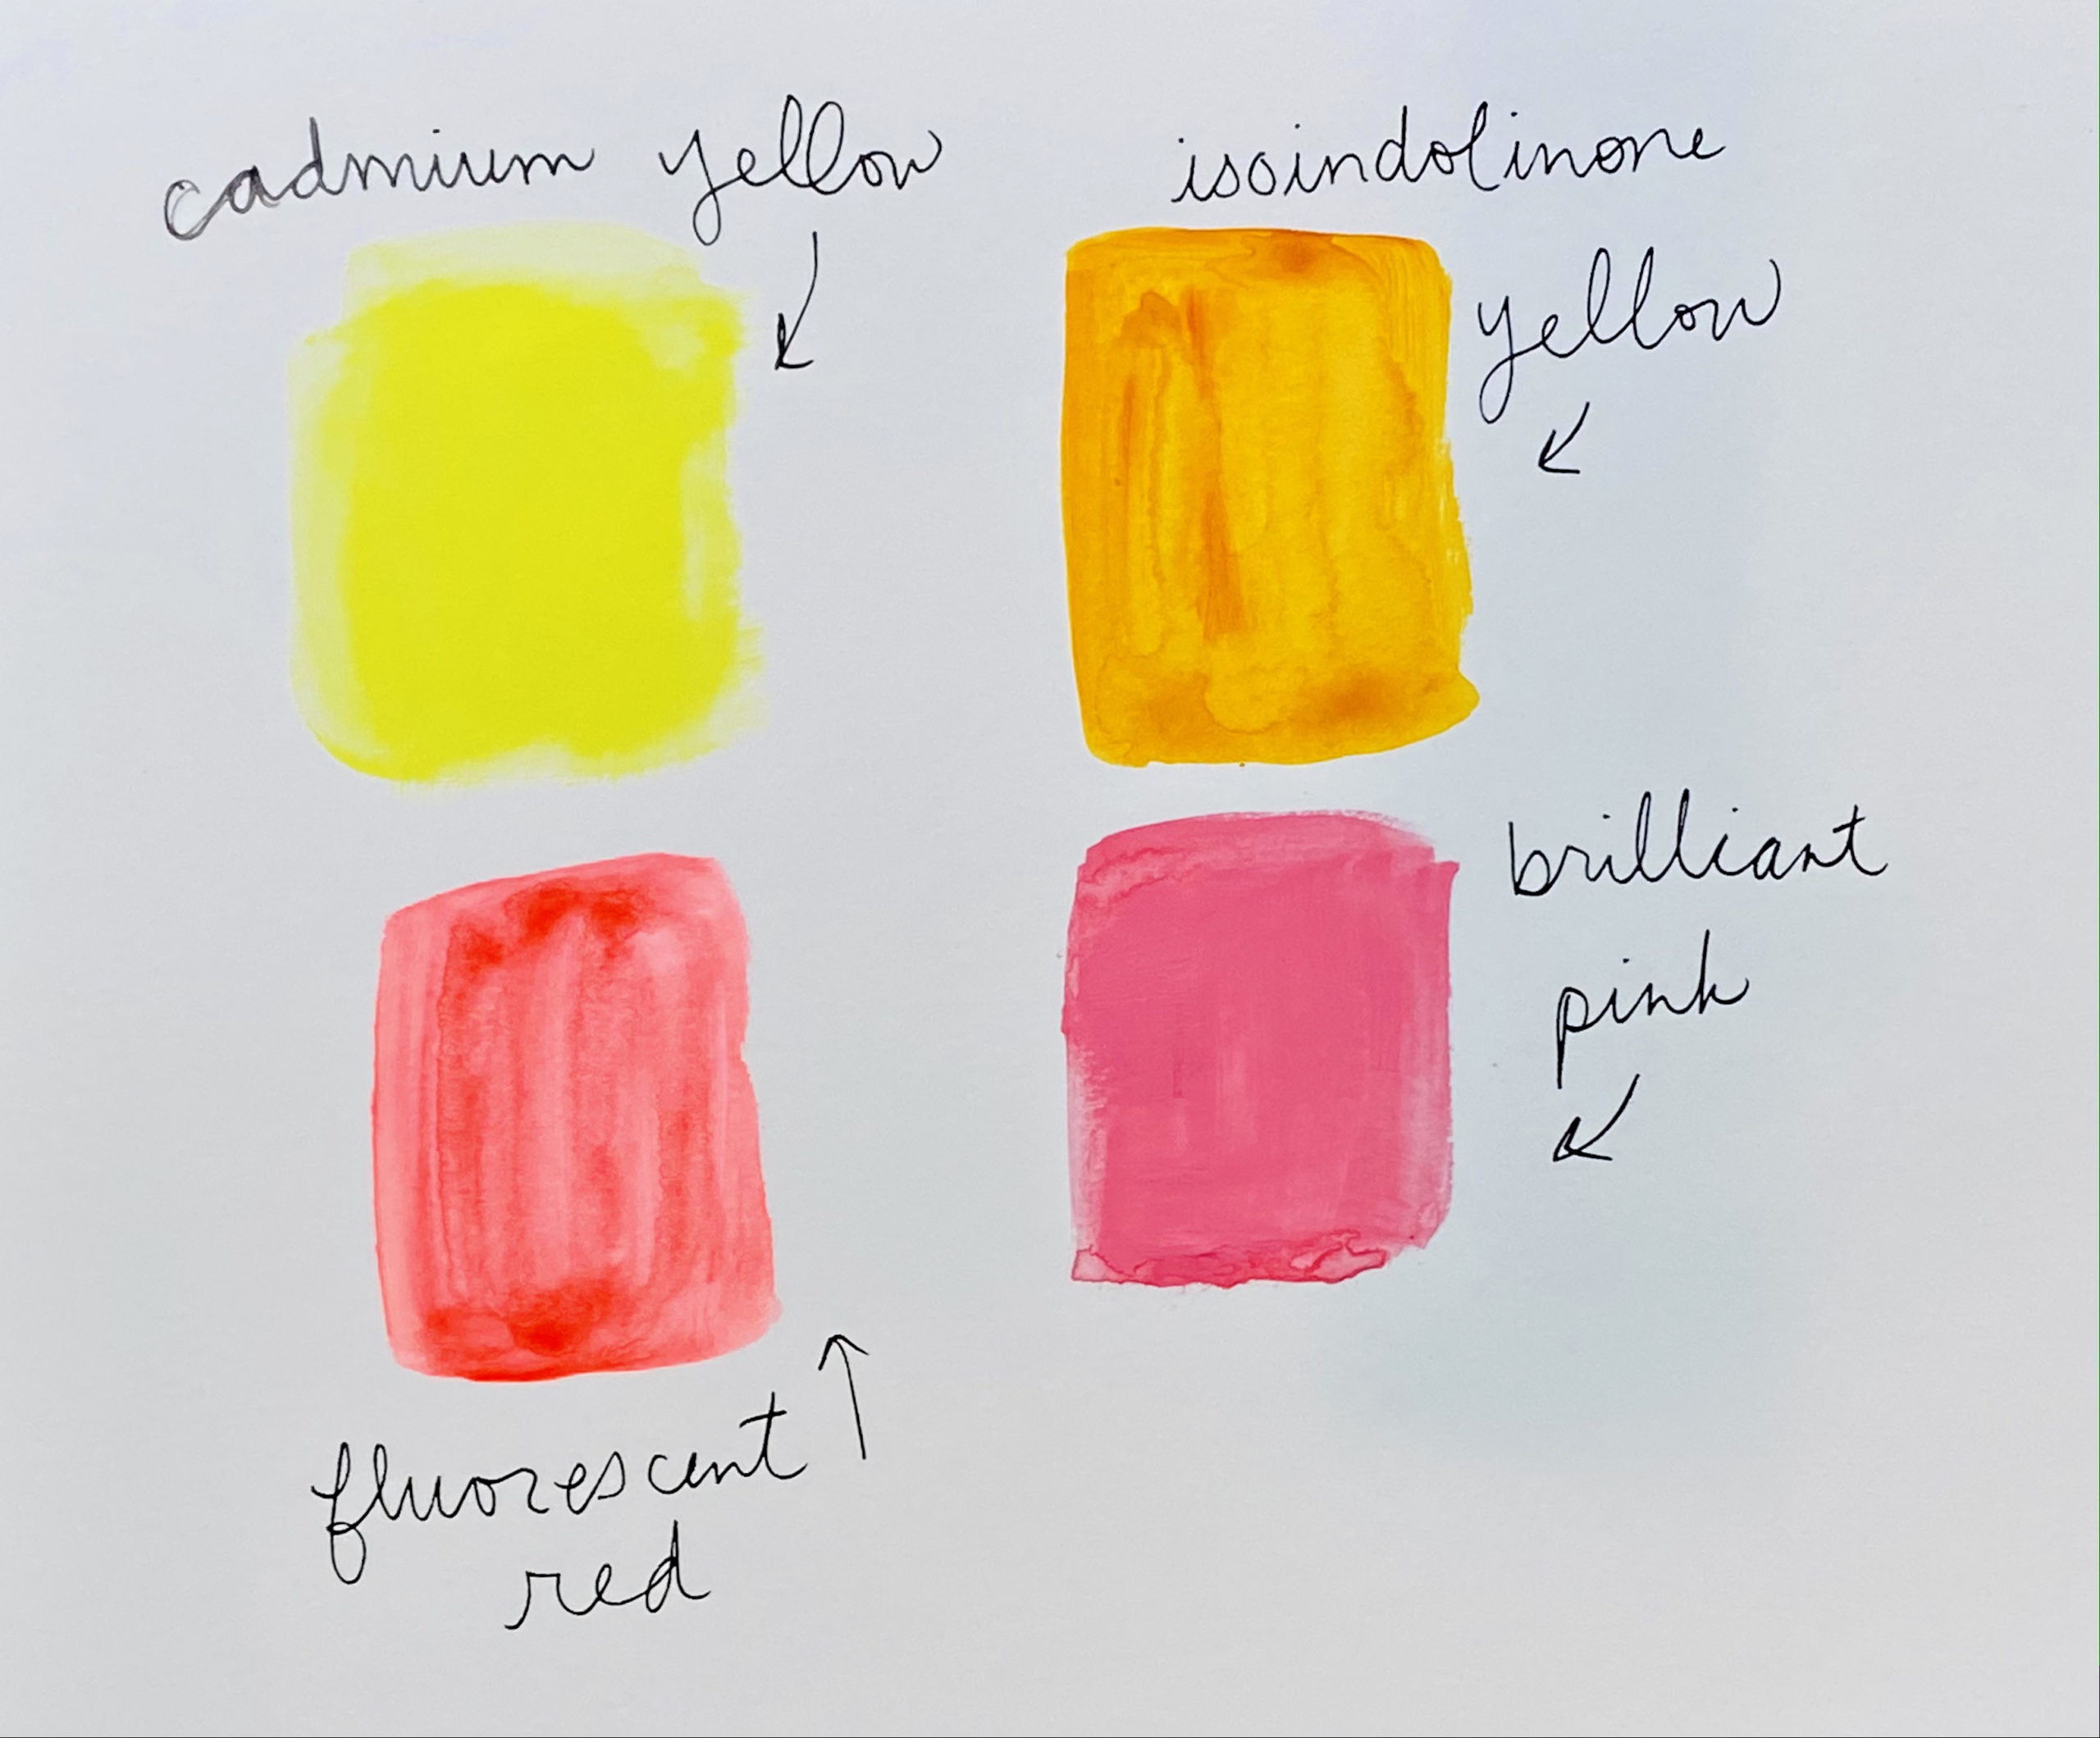 cadmium yellow
isoindolinone
yellow
brilliant
pink
fluorescent
red